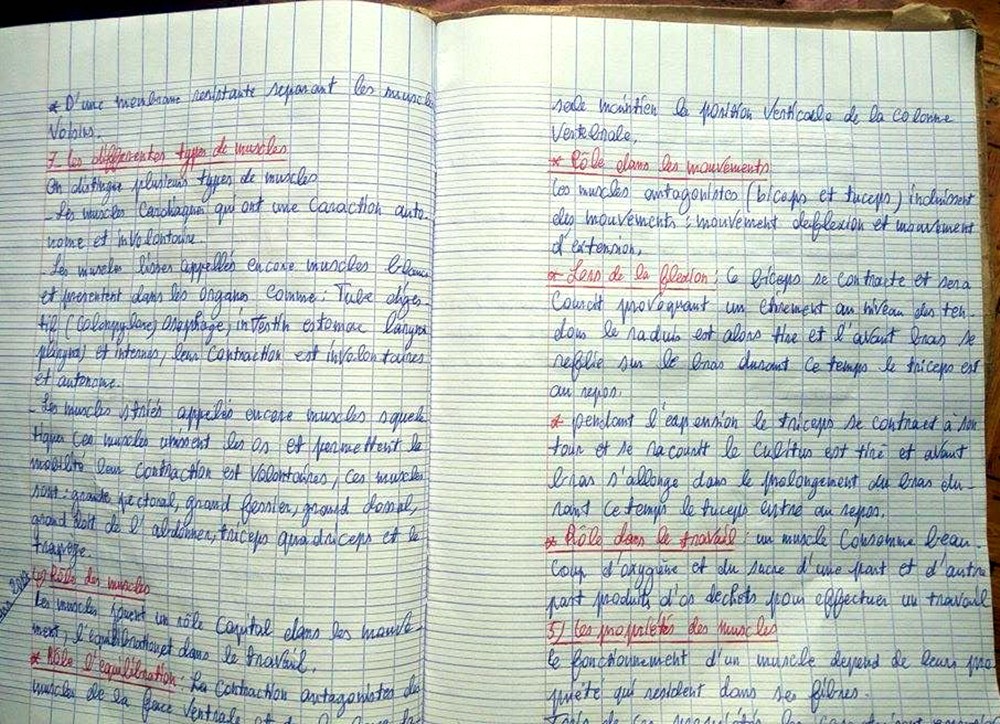 * D'une membrane resistante separant les muscles
Voisins.
7- Les differentes types de muscles
On distingue plusieurs types de muscles
- Les muscles Cardiaques qui ont une Caraction auto-
nome et involontaire.
- Les muscles lisses appellés encore muscles blancs
et presentent dans les organes comme : Tube diges-
tif ( ) , intestin estomac larynx
et internes, leur Contraction est involontaires
et autonome.
- Les muscles striés appelés encore muscles squelet-
tiques ces muscles unissent les os et permettent le
mobilité leur contraction est Volontaires, ces muscles
sont : grande pectoral, grand fessier, grand dorsal,
grand doit de l'abdomen, triceps quadriceps et le
trapeze.
Rôle des muscles
Les muscles jouent un rôle Capital dans les mouve-
ment, l'équilibration et dans le travail.
* Rôle l'equilibration : La Contraction antagonistes des
muscles de la face Ventrale et de la
sale maintien la position Verticale de la colonne
Vertebrale.
* Rôle dans les mouvements
Les muscles antagonistes (biceps et triceps) induisent
des mouvements : mouvement deflexion et mouvement
d'extension.
* Lors de la flexion : Ce biceps se contracte et sera
Courcit provoquant un etirement au niveau des ten-
dons le raduis est alors tire et l'avant bras se
replie sur le bras durant ce temps le triceps est
au repos.
* pendant l'expension le triceps se contract à son
tour et se racourit le Cubitus est tiré et avant
bras s'allonge dans le prolongement du bras du-
rant ce temps le entré au repos.
* Rôle dans le travail : un muscle Consomme beau-
Coup d'oxygène et du sucre d'une part et d'autre
part produits d'os dechets pour effectuer un travail
5) Les proprietés des muscles
Le fonctionnement d'un muscle depend de leurs pro
priété qui resident dans ses fibres.